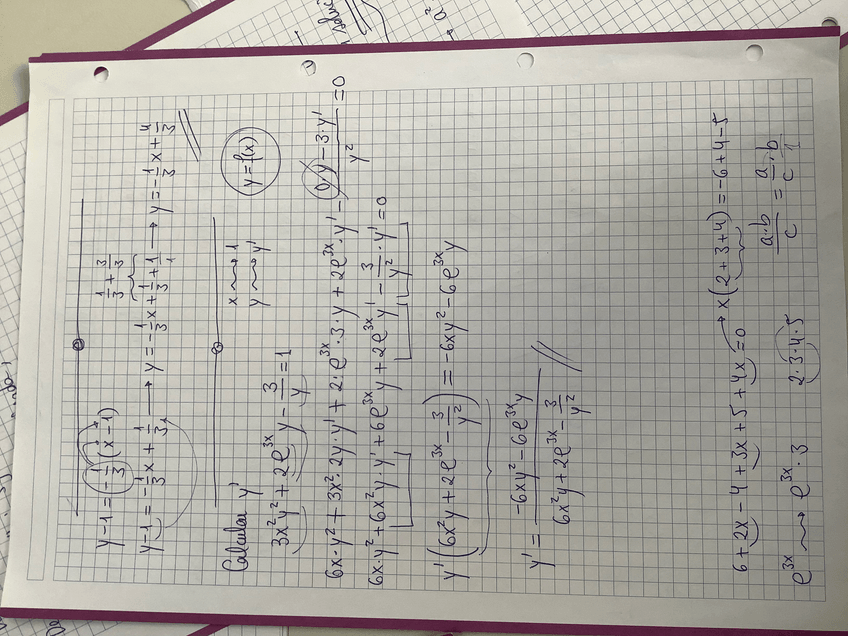 y-1 = -1/3 (x-1)
1/3 + 3/3
y-1 = -1/3 x + 1/3 → y = -1/3 x + 1/3 + 1/1 → y = -1/3 x + 4/3
Calcular y'
x ⇝ 1
y ⇝ y'
y = f(x)
3x²y² + 2e^{3x} y - 3/y = 1
6x·y² + 3x²·2y·y' + 2·e^{3x}·3·y + 2e^{3x}·y' - (0·y - 3·y')/y² = 0
6x·y² + 6x²y y' + 6e^{3x} y + 2e^{3x} y' - 3/y² · y' = 0
y' (6x²y + 2e^{3x} - 3/y²) = -6xy² - 6e^{3x} y
y' = (-6xy² - 6e^{3x} y)/(6x²y + 2e^{3x} - 3/y²)
6 + 2x - 4 + 3x + 5 + 4x = 0 → x(2+3+4) = -6+4-5
e^{3x} ⇝ e^{3x}·3
2·3·4·5
a·b/c = a/c · b/1